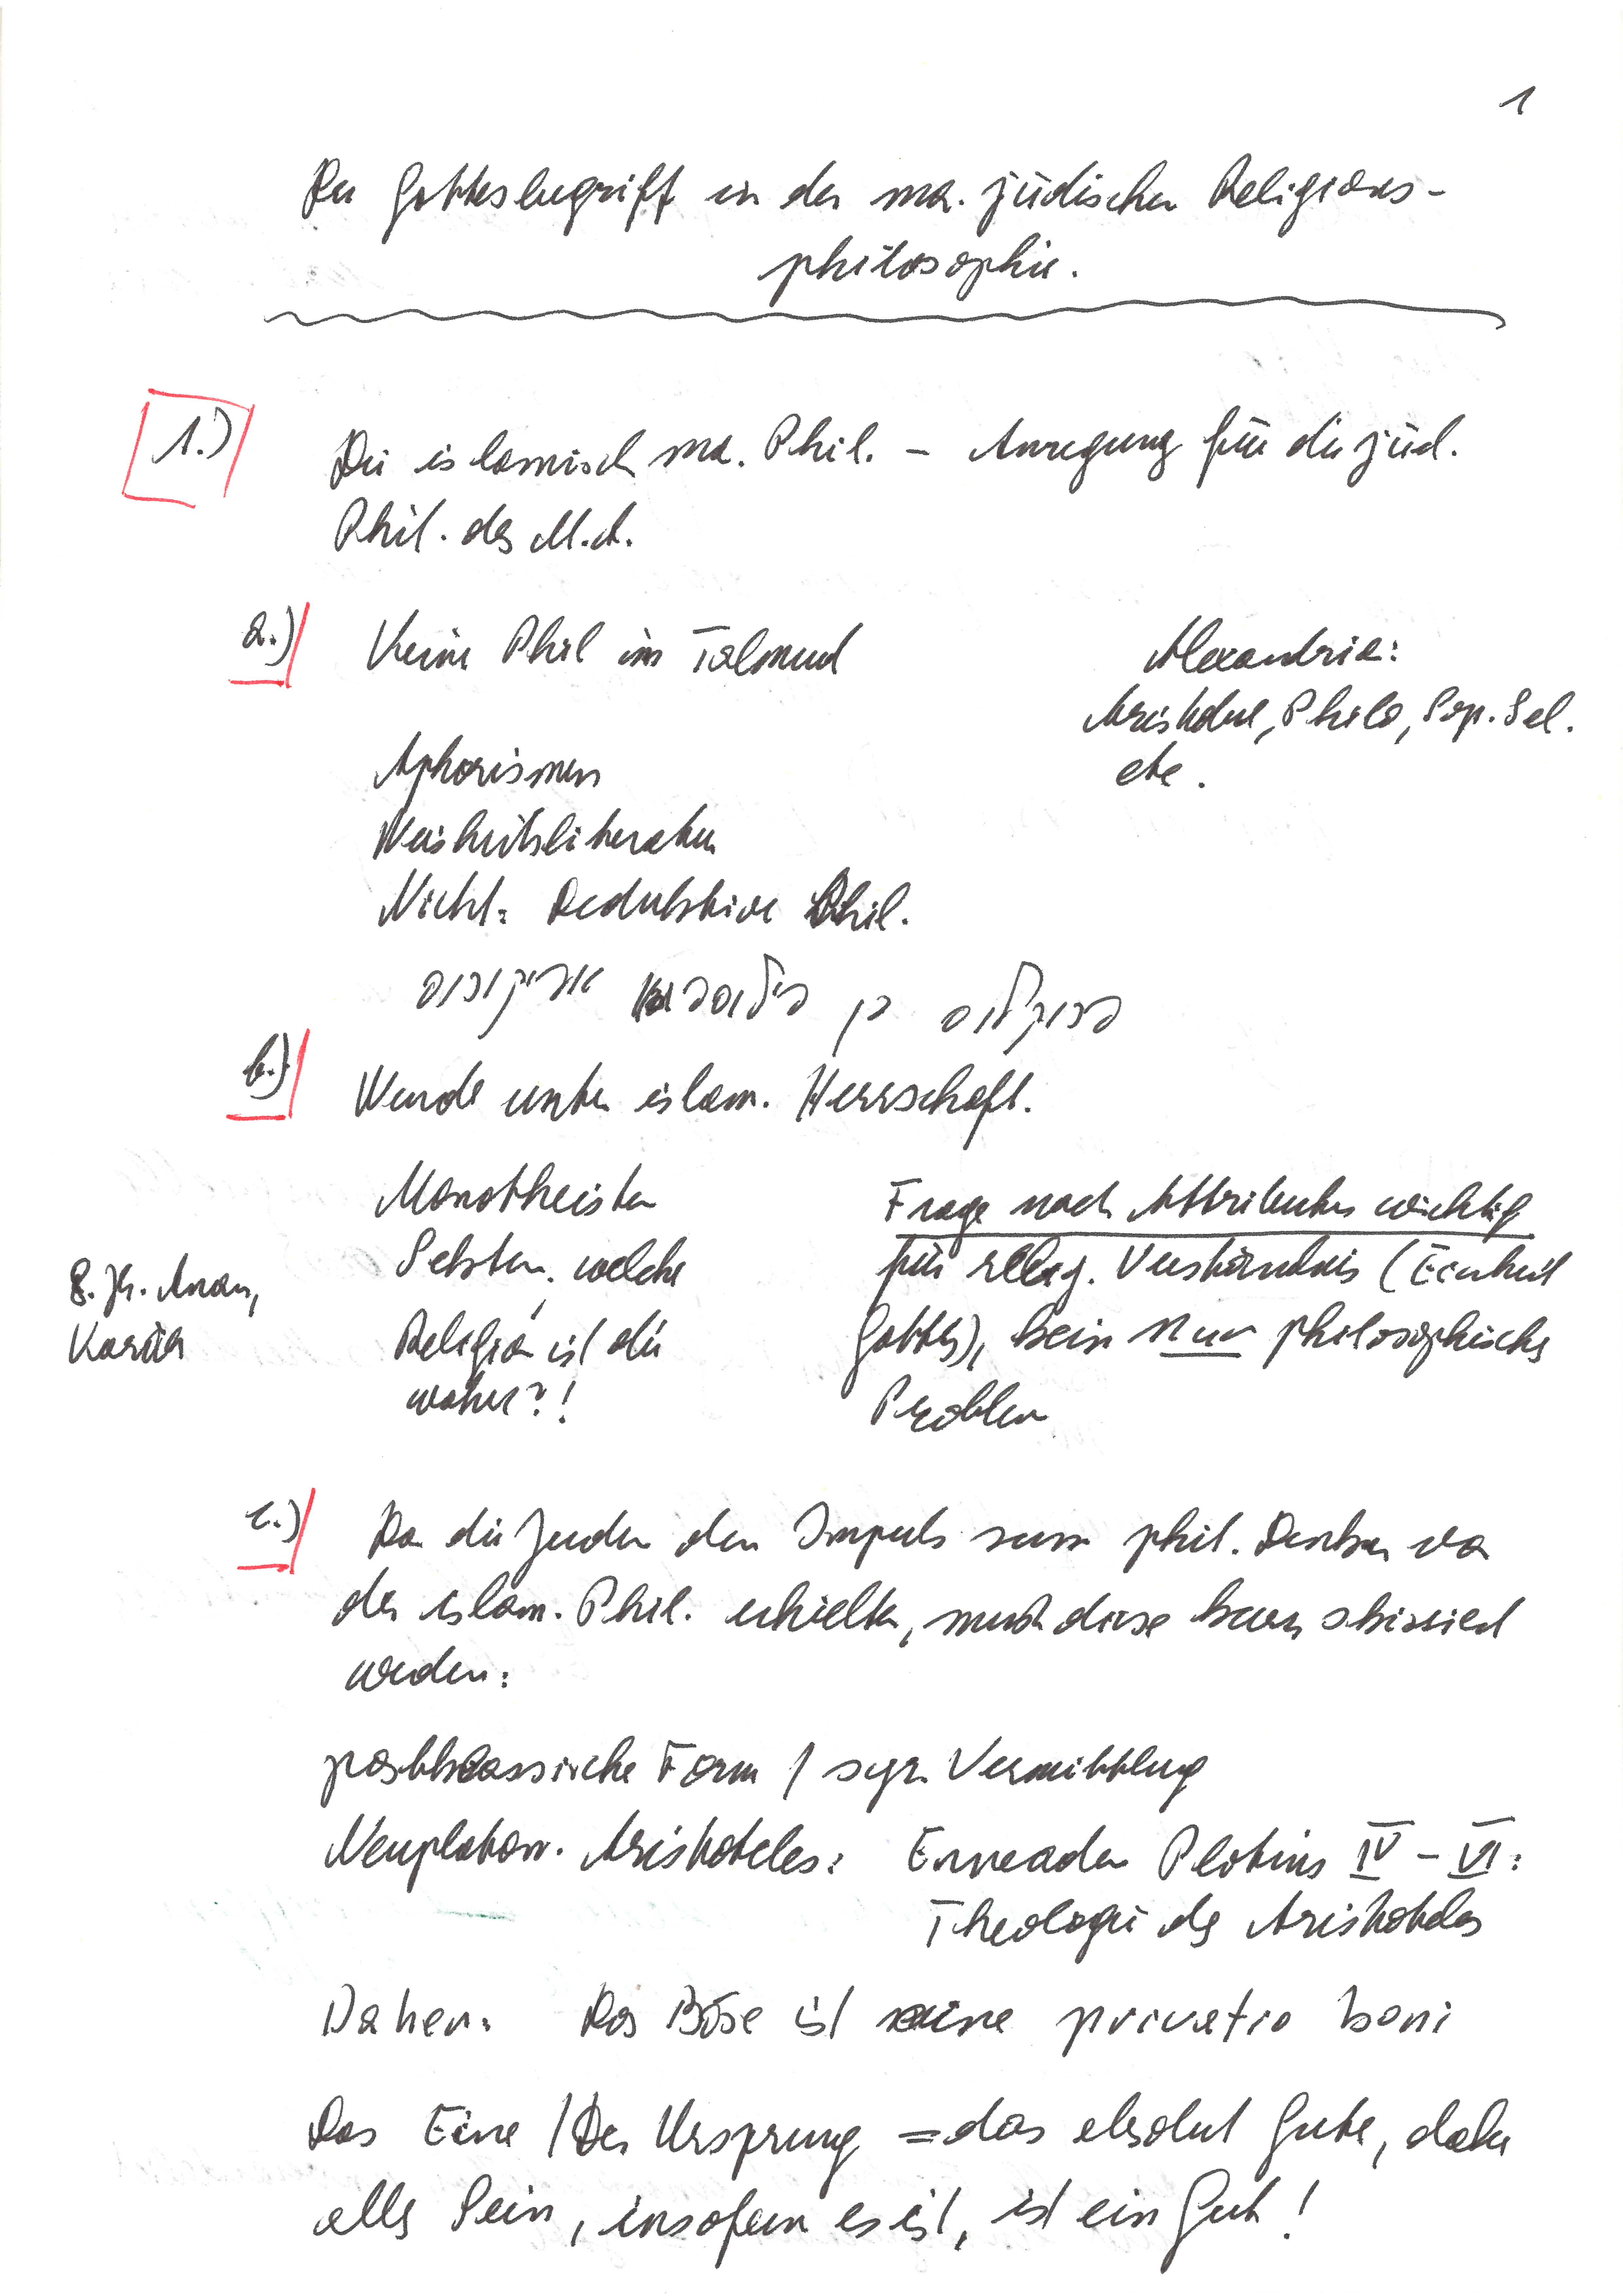 1
Der Gottesbegriff in der ma. jüdischen Religions-
philosophie.
1.)
Die islamisch ma. Phil. – Anregung für die jüd.
Phil. des M.A.
a.) Keine Phil im Talmud
Aphorismen
Weisheitsliteratur
Nicht: Deduktive Phil.
Alexandria:
Aristobul, Philo, Sap. Sal.
etc.
b.) Wurde unter islam. Herrschaft.
Monotheisten
Sekten, welche
Religion ist die
wahre?!
8. Jh. Anan,
Karäer
Frage nach Attributen wichtig
für relig. Verständnis (Einheit
Gottes), kein nur philosophisches
Problem
c.) Da die Juden den Impuls zum phil. Denken von
der islam. Phil. erhielten, muß diese kurz skizziert
werden:
postklassische Form / syr. Vermittlung
Neuplaton. Aristoteles: Enneaden Plotins IV – VI:
Theologie des Aristoteles
Daher: Das Böse ist eine privatio boni
Das Eine / Der Ursprung = das absolut Gute, daher
alles Sein, insofern es ist, ist ein Gut!